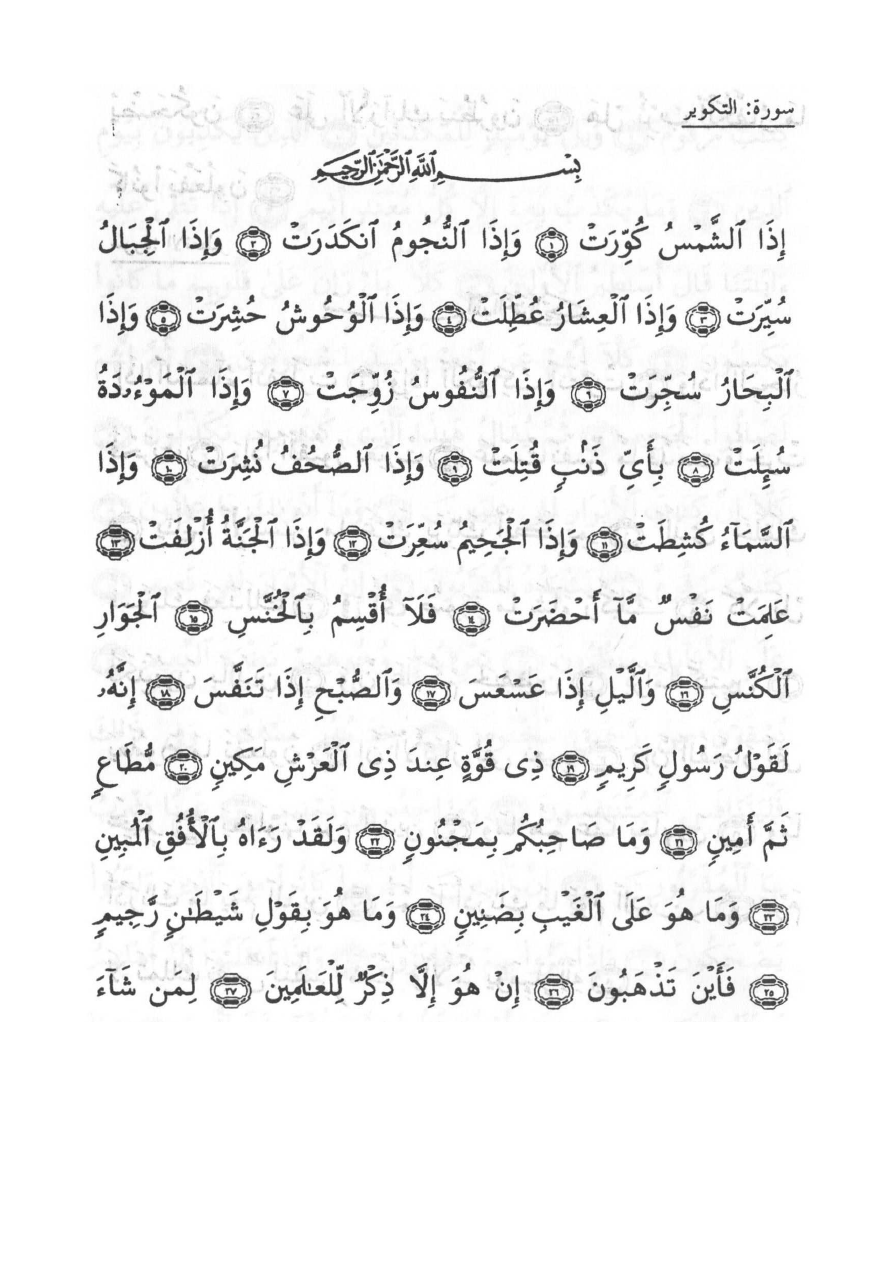 سورة: التكوير
بِسْمِ ٱللَّهِ ٱلرَّحْمَٰنِ ٱلرَّحِيمِ
إِذَا ٱلشَّمْسُ كُوِّرَتْ ١ وَإِذَا ٱلنُّجُومُ ٱنكَدَرَتْ ٢ وَإِذَا ٱلْجِبَالُ
سُيِّرَتْ ٣ وَإِذَا ٱلْعِشَارُ عُطِّلَتْ ٤ وَإِذَا ٱلْوُحُوشُ حُشِرَتْ ٥ وَإِذَا
ٱلْبِحَارُ سُجِّرَتْ ٦ وَإِذَا ٱلنُّفُوسُ زُوِّجَتْ ٧ وَإِذَا ٱلْمَوْءُۥدَةُ
سُئِلَتْ ٨ بِأَىِّ ذَنۢبٍ قُتِلَتْ ٩ وَإِذَا ٱلصُّحُفُ نُشِرَتْ ١٠ وَإِذَا
ٱلسَّمَآءُ كُشِطَتْ ١١ وَإِذَا ٱلْجَحِيمُ سُعِّرَتْ ١٢ وَإِذَا ٱلْجَنَّةُ أُزْلِفَتْ ١٣
عَلِمَتْ نَفْسٌ مَّآ أَحْضَرَتْ ١٤ فَلَآ أُقْسِمُ بِٱلْخُنَّسِ ١٥ ٱلْجَوَارِ
ٱلْكُنَّسِ ١٦ وَٱلَّيْلِ إِذَا عَسْعَسَ ١٧ وَٱلصُّبْحِ إِذَا تَنَفَّسَ ١٨ إِنَّهُۥ
لَقَوْلُ رَسُولٍ كَرِيمٍ ١٩ ذِى قُوَّةٍ عِندَ ذِى ٱلْعَرْشِ مَكِينٍ ٢٠ مُّطَاعٍ
ثَمَّ أَمِينٍ ٢١ وَمَا صَاحِبُكُم بِمَجْنُونٍ ٢٢ وَلَقَدْ رَءَاهُ بِٱلْأُفُقِ ٱلْمُبِينِ
٢٣ وَمَا هُوَ عَلَى ٱلْغَيْبِ بِضَنِينٍ ٢٤ وَمَا هُوَ بِقَوْلِ شَيْطَٰنٍ رَّجِيمٍ
٢٥ فَأَيْنَ تَذْهَبُونَ ٢٦ إِنْ هُوَ إِلَّا ذِكْرٌ لِّلْعَٰلَمِينَ ٢٧ لِمَن شَآءَ